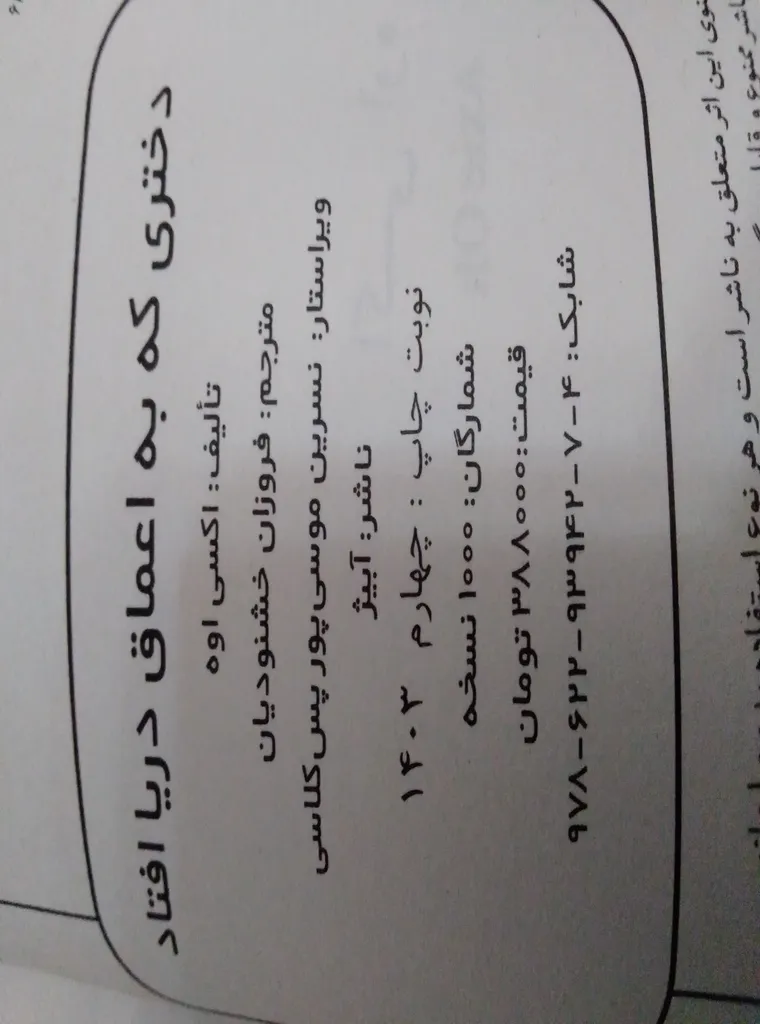 دختری که به اعماق دریا افتاد
تألیف: اکسی اوه
مترجم: فروزان خشنودیان
ویراستار: نسرین موسی‌پور پس‌کلاسی
ناشر: آبیژ
نوبت چاپ : چهارم ۱۴۰۳
شمارگان: ۱۰۰۰ نسخه
قیمت: ۳۸۸۰۰۰ تومان
شابک: ۴-۷-۹۳۹۴۲-۶۲۲-۹۷۸
این اثر متعلق به ناشر است و هر نوع استفاده